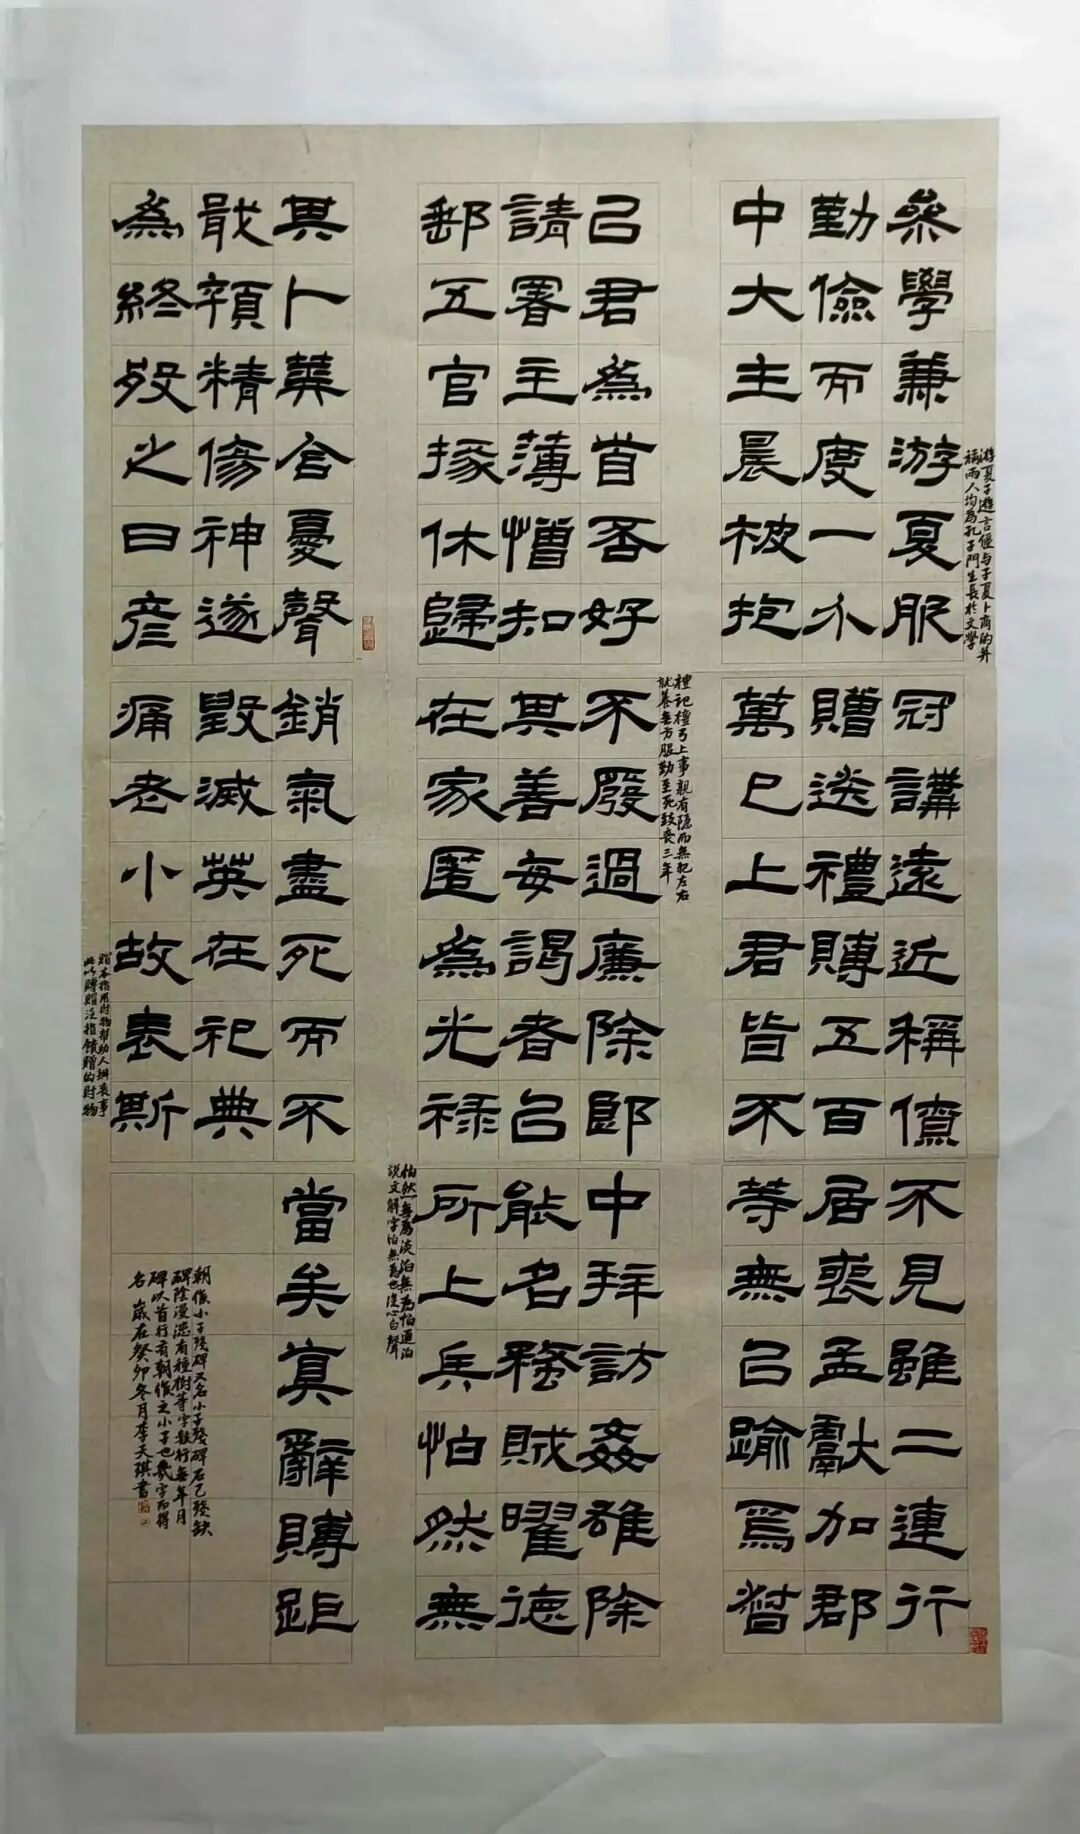 叅學兼游夏服冠講遠近稱僚不見雖二連行
勤儉而度一介贈送禮賻五百居喪孟獻加郡
中大主晨被抱萬已上君皆不等無以踰焉
游夏子遊言偃与子夏卜商的并
稱兩人均為孔子門生長於文學
以君為首否好不廢過廉除郎中拜訪姦雄除
請署主薄憎知其善每謁者以能名賊曜德
郵五官掾休歸在家匿為光祿所上兵怕然無
禮記檀弓上事親有隱而無犯左右
就養無方服勤至死致喪三年
怕然無為淡泊無為怕通泊
說文解字怕無為也從心白聲
其卜葬含憂聲銷氣盡死而不當矣真辭賻距
戢顇精傷神遂毀滅英在祀典
為終歿之曰彦痛老小故喪斯
賵本指用財物幫助人辦喪事
此以賻贈泛指饋贈的財物
朝侯小子殘碑又名小子殘碑石已殘缺
碑陰漫漶有種樹等字數行無年月
碑以首行有朝侯之小子也幾字而得
名 歲在癸卯冬月李天琪書